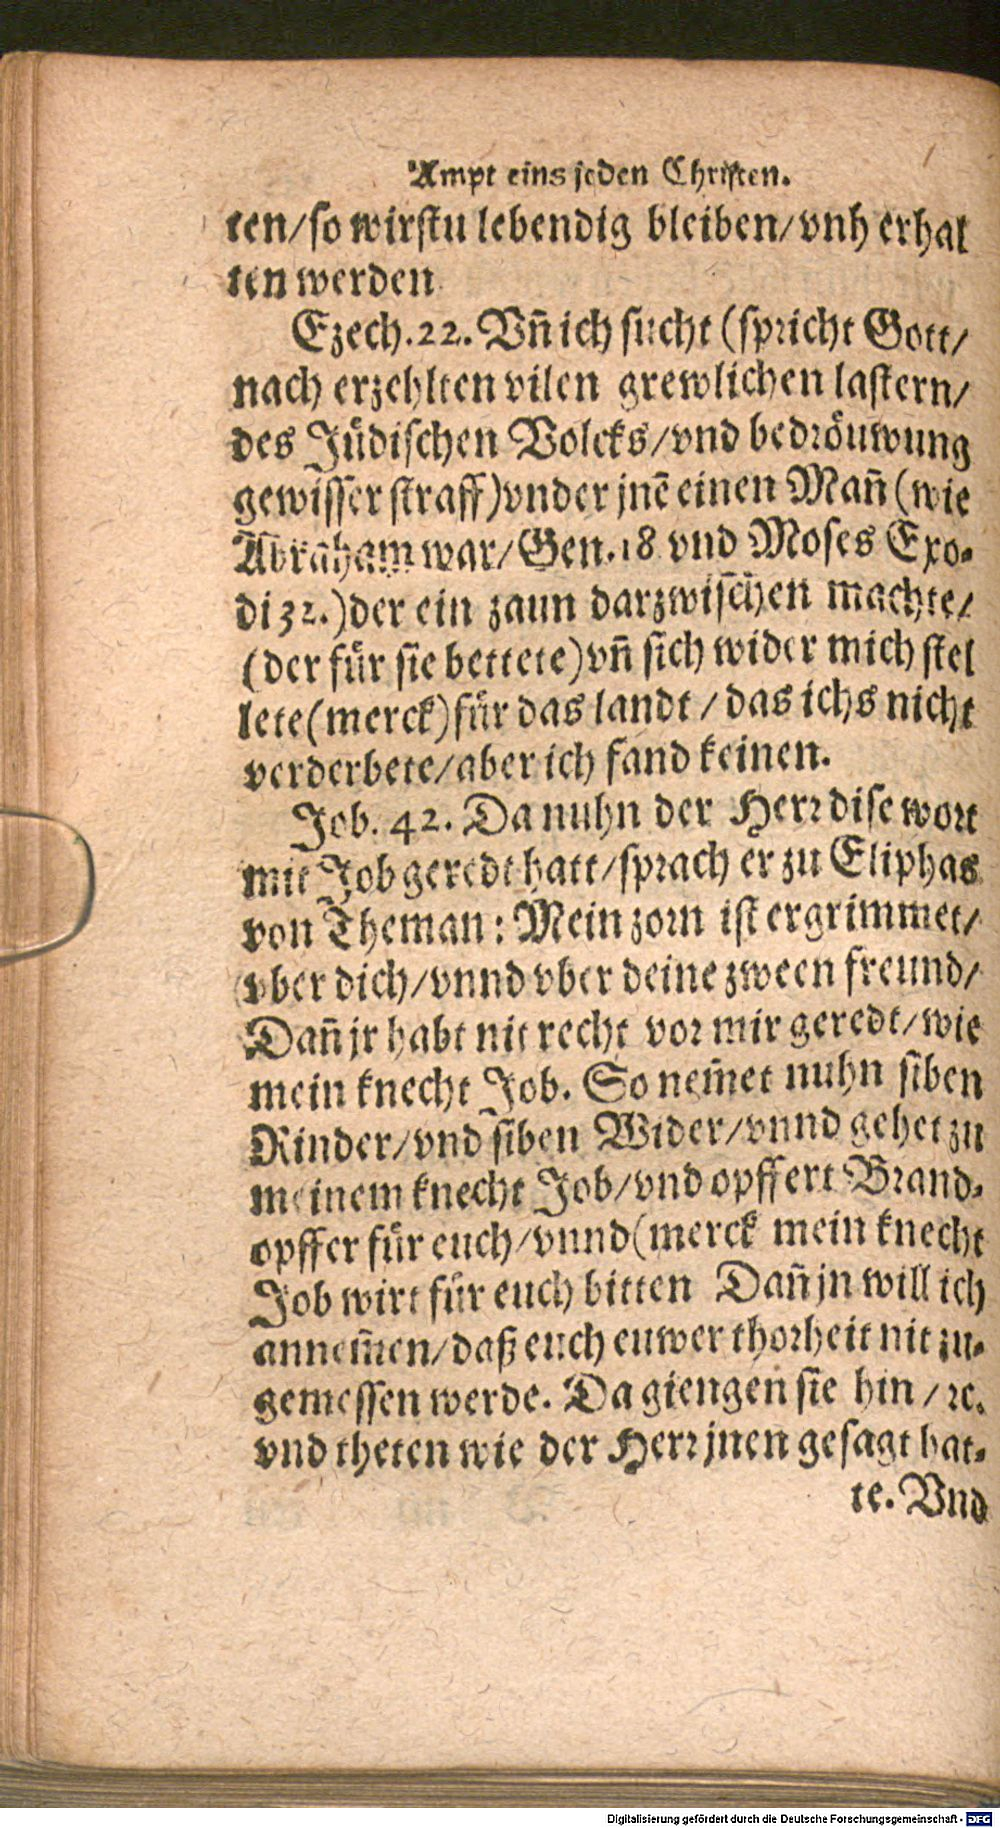 Ampt eins jeden Christen.
ten/so wirstu lebendig bleiben/vnh erhal
ten werden
Ezech.22. Vñ ich sucht (spricht Gott/
nach erzehlten vilen grewlichen lastern/
des Jüdischen Volcks/vnd bedröuwung
gewisser straff)vnder jnē einen Mañ (wie
Abraham war/Gen.18 vnd Moses Exo-
di 32.)der ein zaun darzwischen machte/
(der für sie bettete)vñ sich wider mich stel
lete(merck)für das landt/das ichs nicht
verderbete/aber ich fand keinen.
Job. 42. Da nuhn der Herr dise wort
mit Job geredt hatt/sprach er zu Eliphas
von Theman: Mein zorn ist ergrimmet/
vber dich/vnnd vber deine zween freund/
Dañ jr habt nit recht vor mir geredt/wie
mein knecht Job. So nem̃et nuhn siben
Rinder/vnd siben Wider/vnnd gehet zu
meinem knecht Job/vnd opffert Brand-
opffer für euch/vnnd(merck mein knecht
Job wirt für euch bitten Dañ jn will ich
annem̃en/daß euch euwer thorheit nit zu-
gemessen werde. Da giengen sie hin/ꝛc.
vnd theten wie der Herr jnen gesagt hat-
te. Vnd
Digitalisierung gefördert durch die Deutsche Forschungsgemeinschaft - DFG